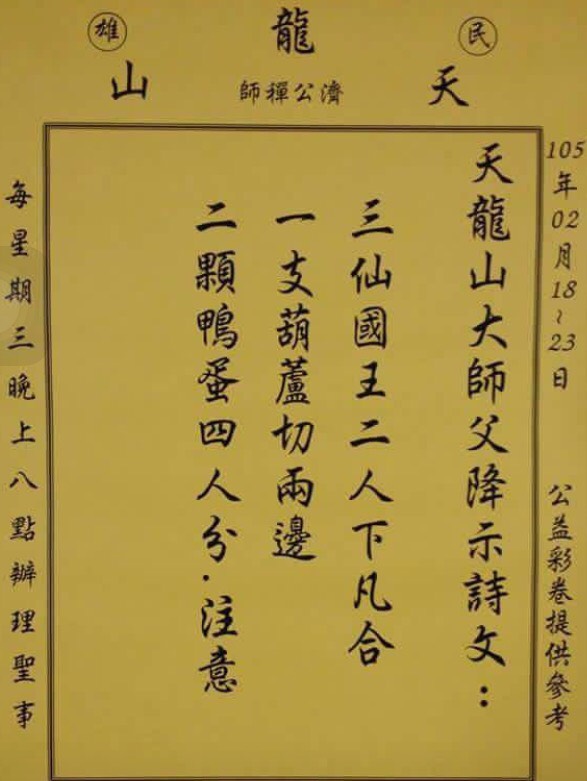 民雄
天龍山
濟公禪師
105年02月18~23日 公益彩卷提供參考
天龍山大師父降示詩文：
三仙國王二人下凡合
一支葫蘆切兩邊
二顆鴨蛋四人分.注意
每星期三晚上八點辦理聖事